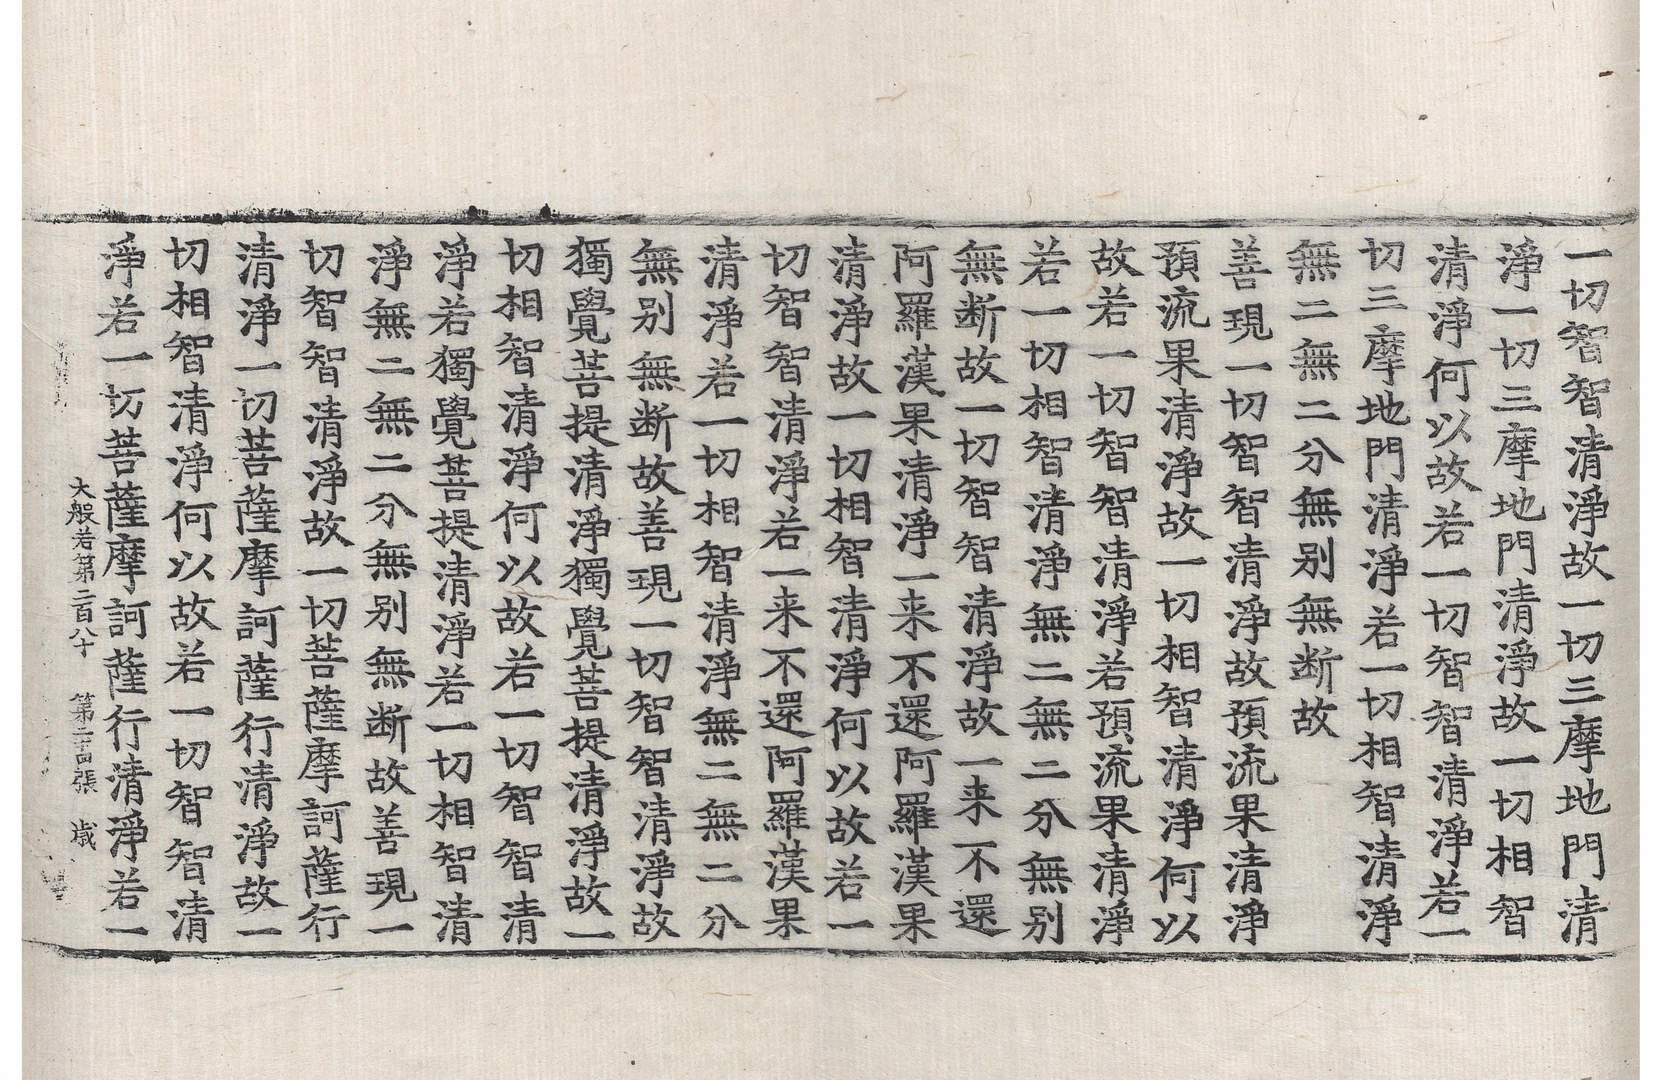 一切智智清淨故一切三摩地門清
淨一切三摩地門清淨故一切相智
清淨何以故若一切智智清淨若一
切三摩地門清淨若一切相智清淨
無二無二分無別無断故
善現一切智智清淨故預流果清淨
預流果清淨故一切相智清淨何以
故若一切智智清淨若預流果清淨
若一切相智清淨無二無二分無別
無断故一切智智清淨故一来不還
阿羅漢果清淨一来不還阿羅漢果
清淨故一切相智清淨何以故若一
切智智清淨若一来不還阿羅漢果
清淨若一切相智清淨無二無二分
無別無断故善現一切智智清淨故
獨覺菩提清淨獨覺菩提清淨故一
切相智清淨何以故若一切智智清
淨若獨覺菩提清淨若一切相智清
淨無二無二分無別無断故善現一
切智智清淨故一切菩薩摩訶薩行
清淨一切菩薩摩訶薩行清淨故一
切相智清淨何以故若一切智智清
淨若一切菩薩摩訶薩行清淨若一
大般若第二百八十 第二十四張 歲